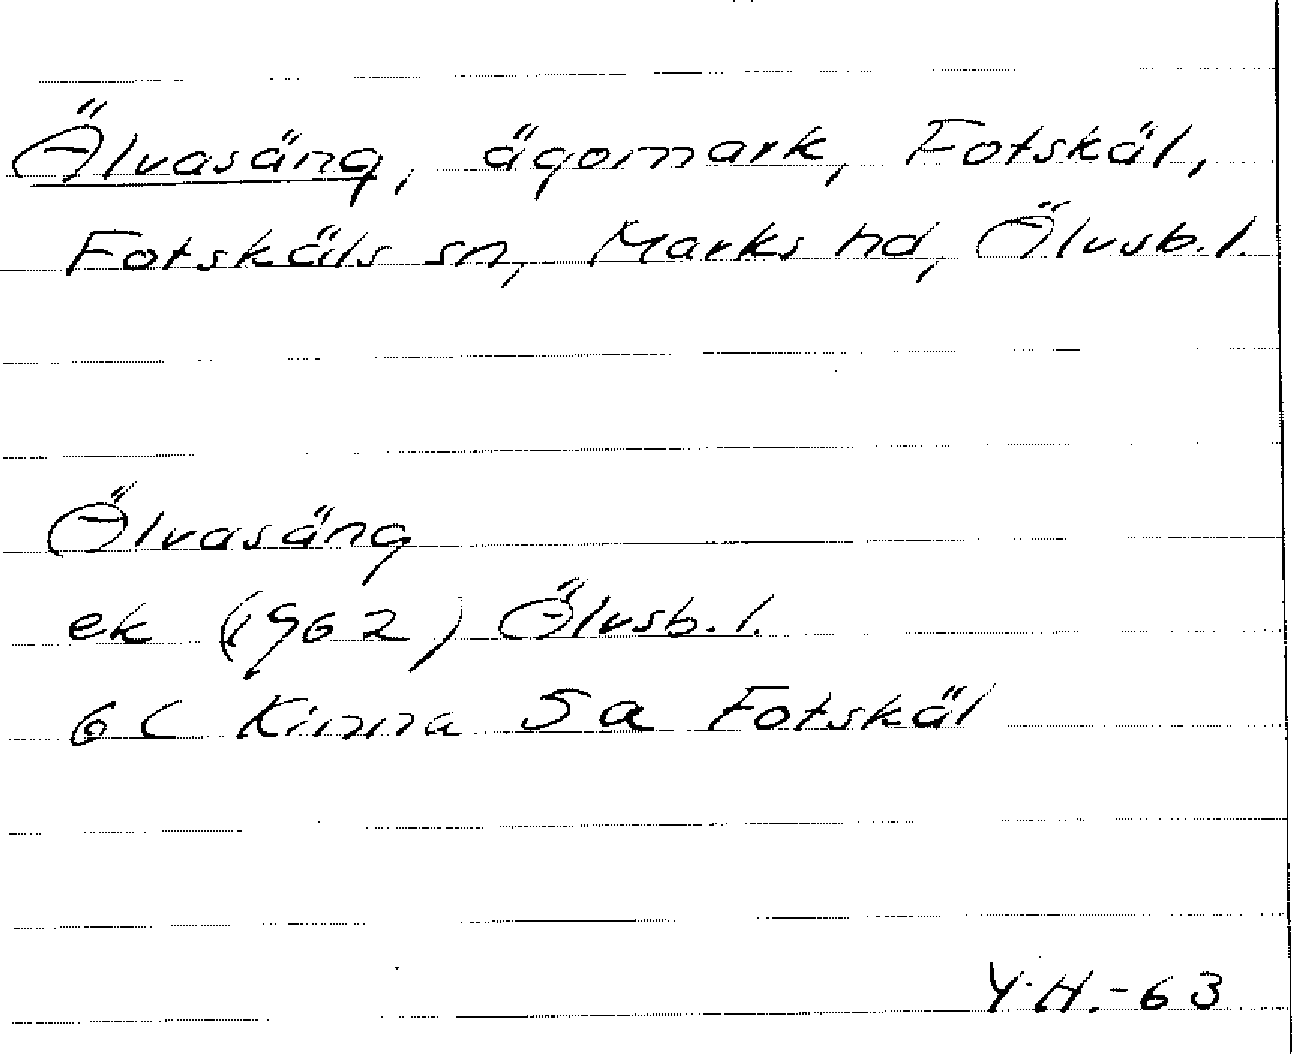 Älvasäng, ägomark, Fotskäl,
Fotskäls sn, Marks hd, Älvsb. l.
Älvasäng
ek (1962) Älvsb. l.
6 C Kinna 5 a Fotskäl
Y. H. -63